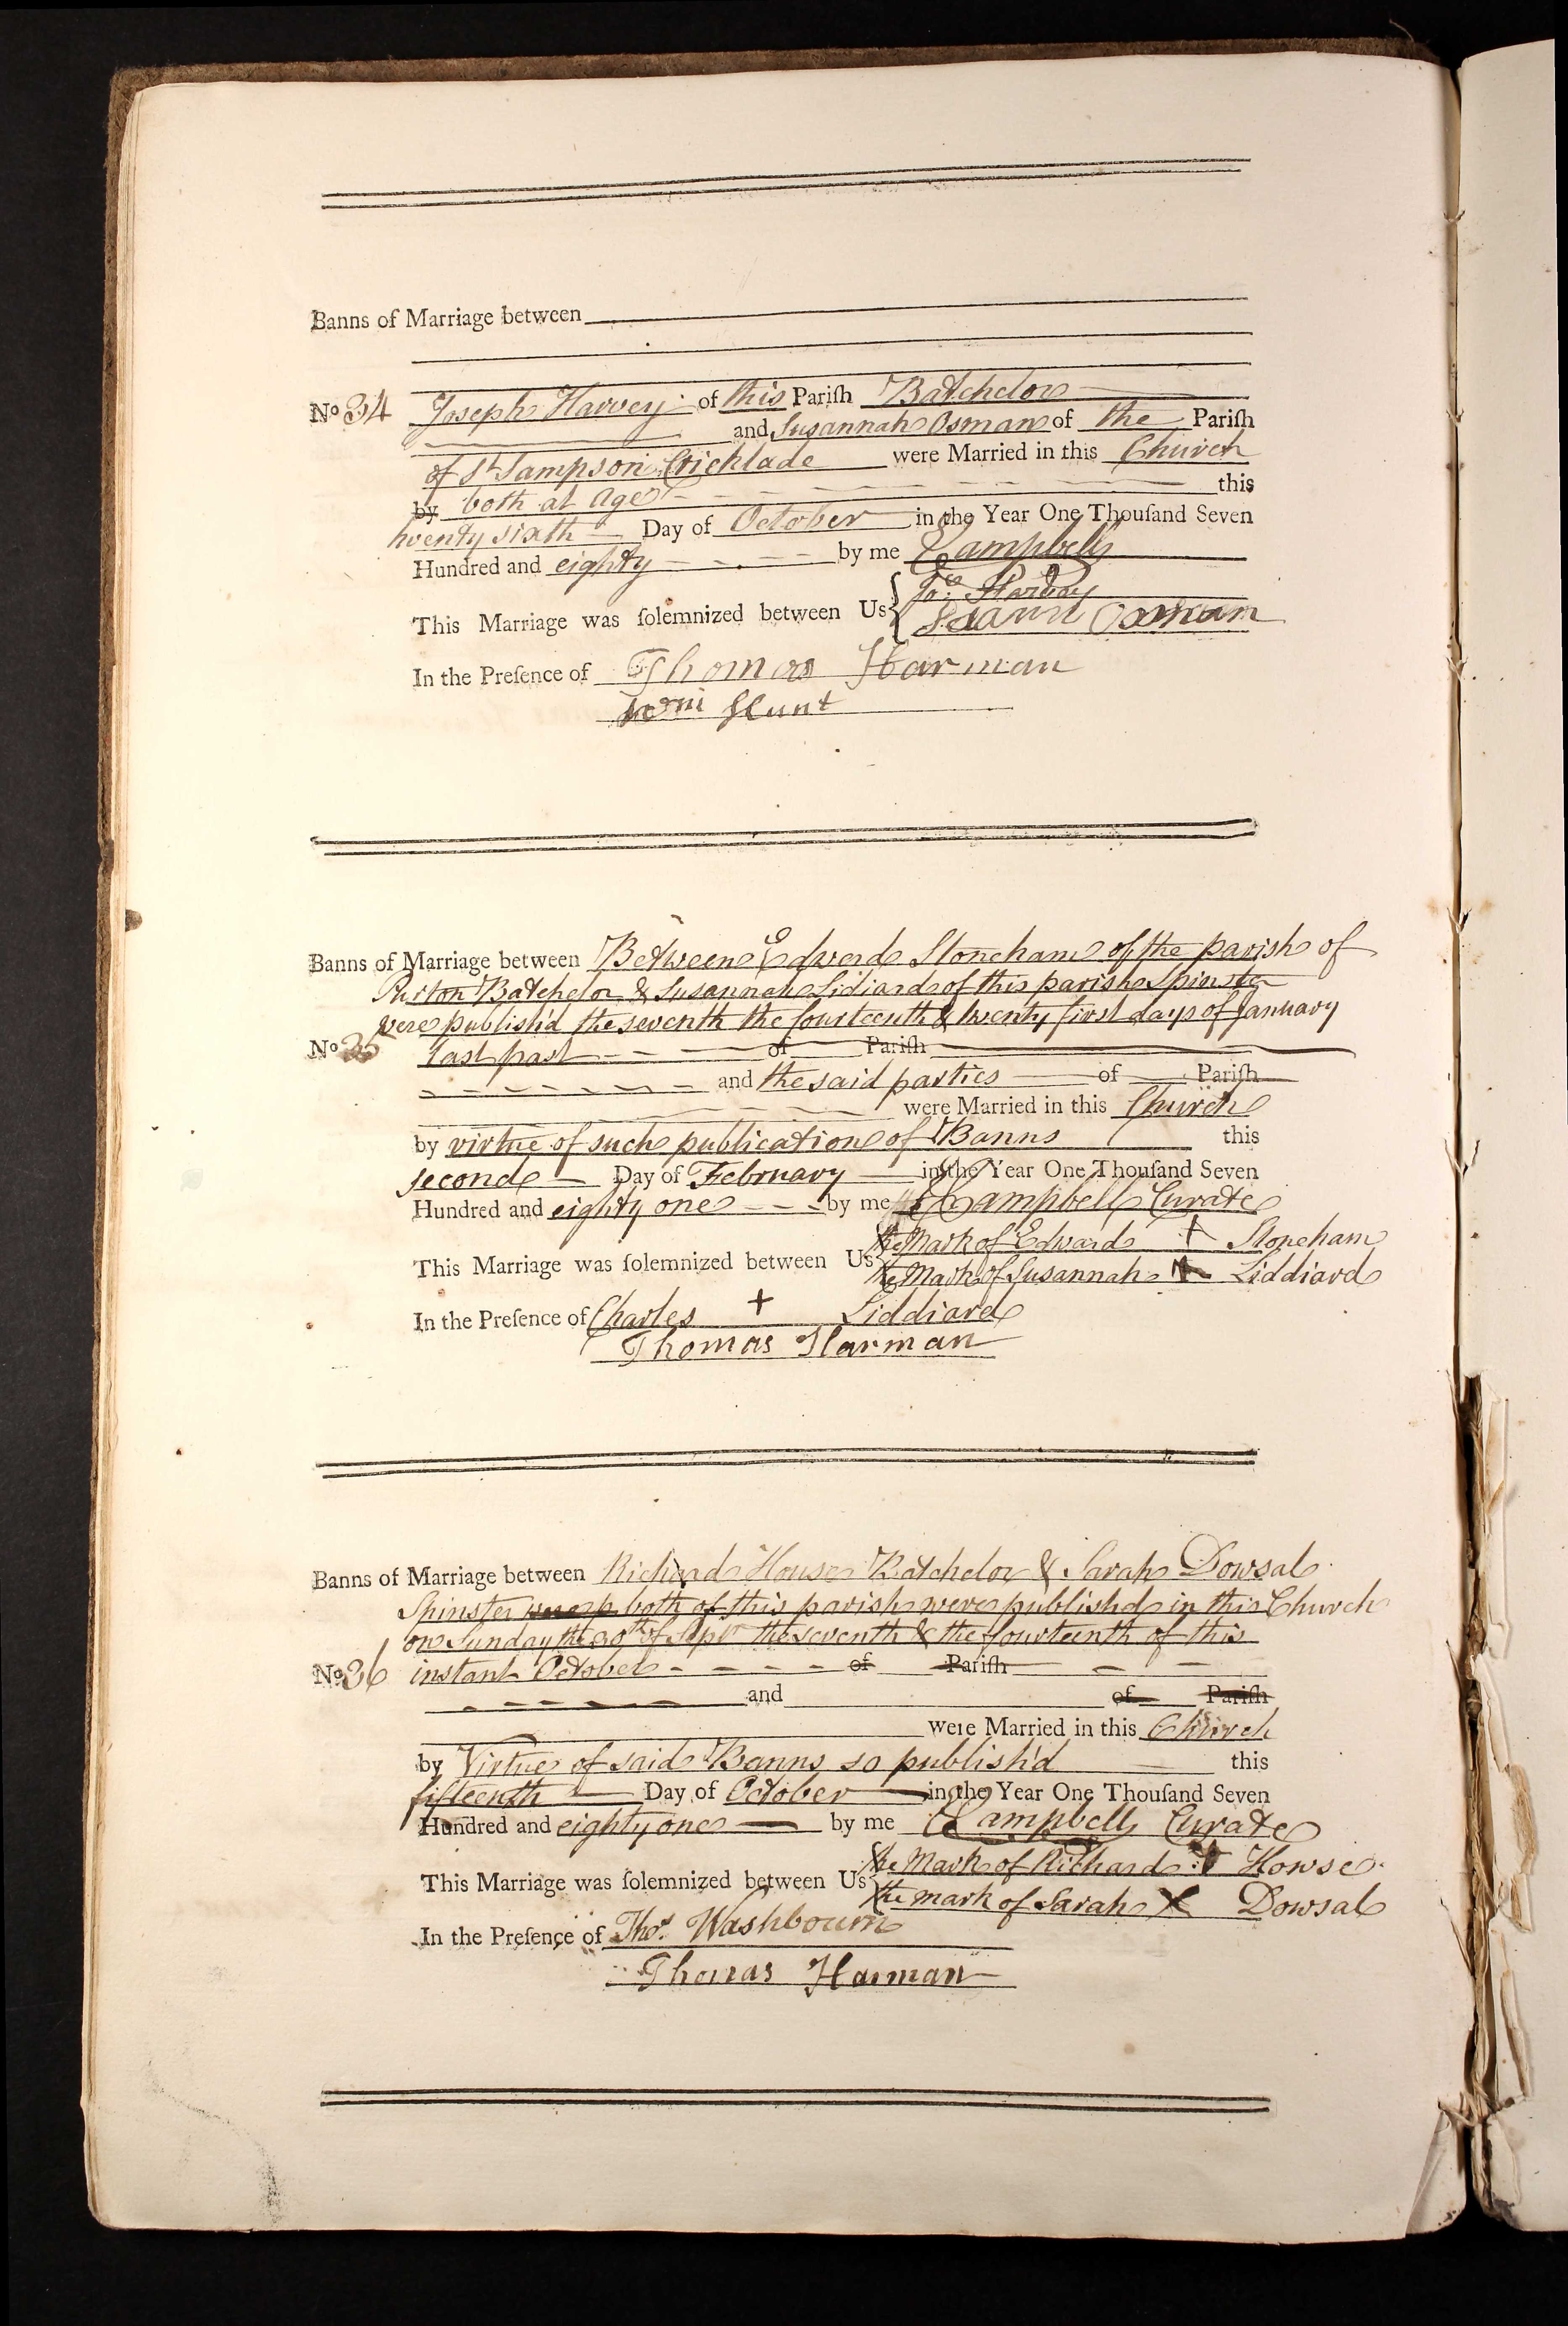 Banns of Marriage between
No 34 Joseph Harvey of this Pariſh Batchelor
and Susannah Osman of the Pariſh
of St Sampson Cricklade were Married in this Church
by both at age this
twenty sixth Day of October in the Year One Thouſand Seven
Hundred and eighty by me Campbell
This Marriage was ſolemnized between Us Jos: Harvey
Osman
In the Preſence of Thomas Harman
Wm Hunt
Banns of Marriage between Between Edward Stoneham of the parish of
Purton Batchelor & Susannah Lidiard of this parish Spinster
were publish'd the seventh the fourteenth & twenty first days of January
No 35 last past of Pariſh
and the said parties of Pariſh
were Married in this Church
by virtue of such publication of Banns this
second Day of February in the Year One Thouſand Seven
Hundred and eighty one by me Campbell Curate
the Mark of Edward + Stoneham
This Marriage was ſolemnized between Us
the Mark of Susannah Liddiard
In the Preſence of Charles + Liddiard
Thomas Harman
Banns of Marriage between Richard House Batchelor & Sarah Dowsal
Spinster both of this parish were publishd in this Church
on Sunday the 30th of Sepr the seventh & the fourteenth of this
No 36 instant October of Pariſh
and of Pariſh
were Married in this Church
by Virtue of said Banns so publish'd this
fifteenth Day of October in the Year One Thouſand Seven
Hundred and eighty one by me Campbell Curate
the Mark of Richard Howse
This Marriage was ſolemnized between Us
the mark of Sarah X Dowsal
In the Preſence of Thos. Washbourn
Thomas Harman